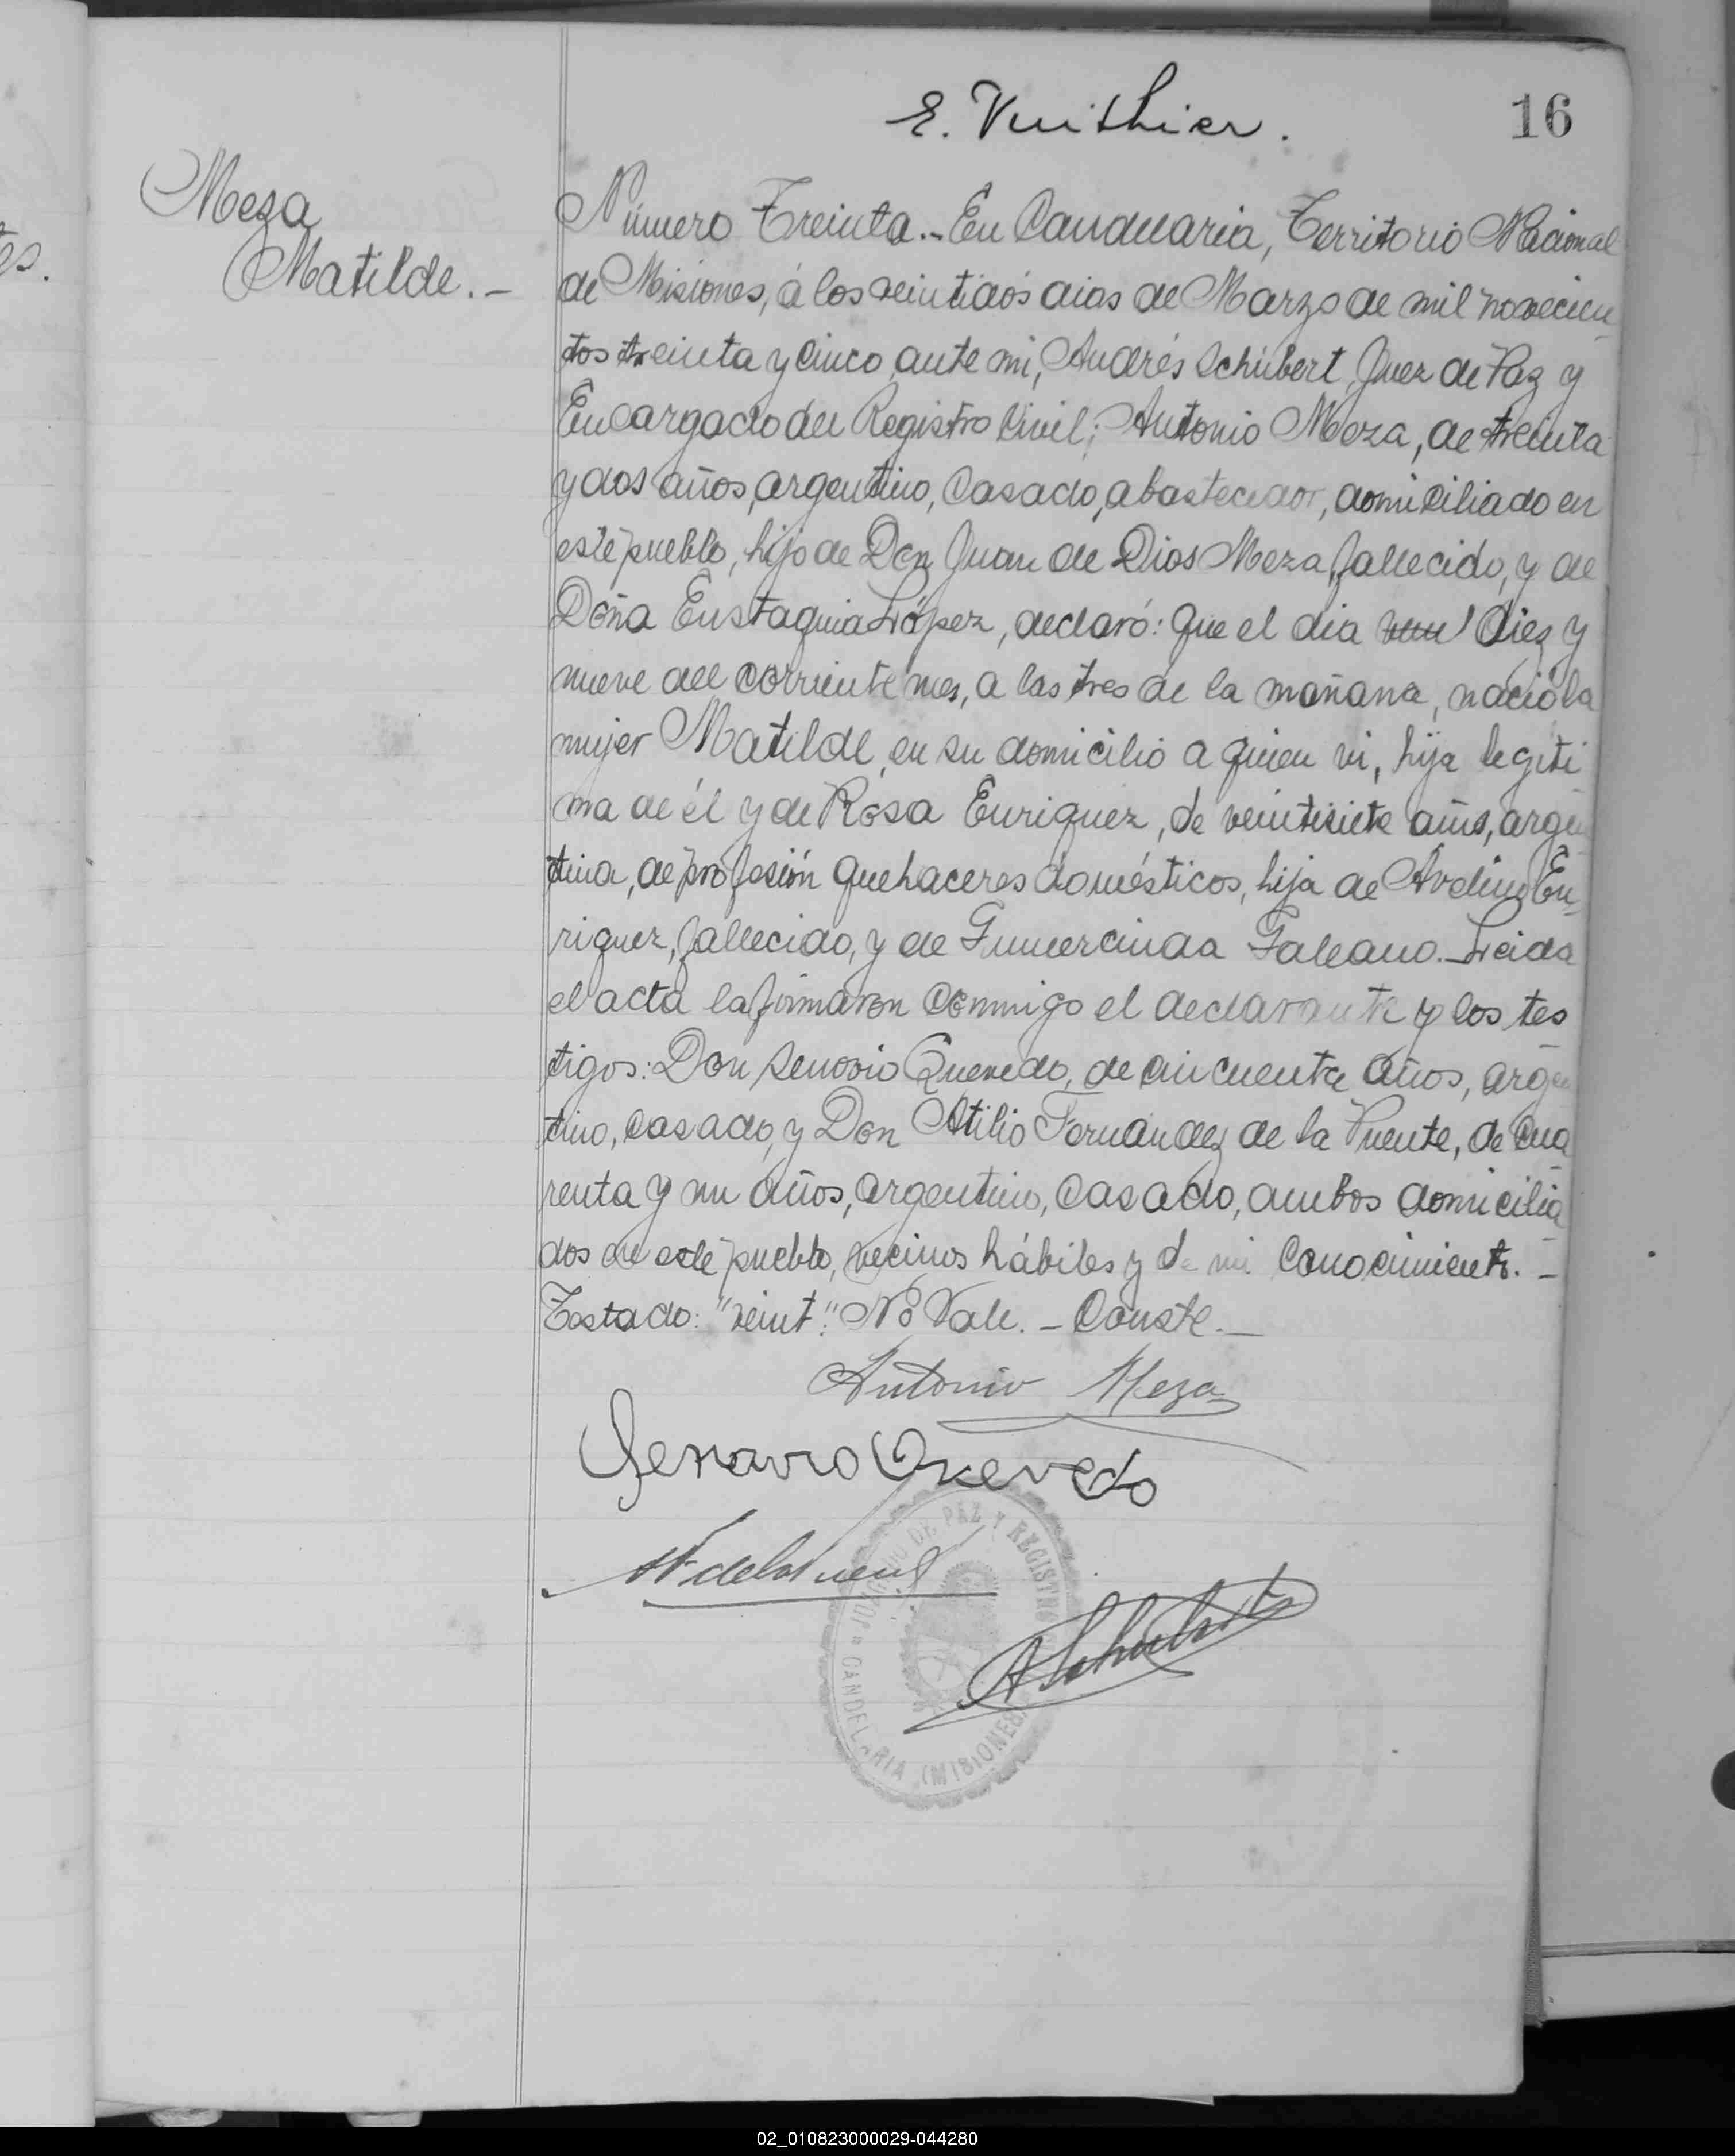 E. Vuithier.
16
Meza
Matilde.-
Número Treinta.- En Candelaria, Territorio Nacional
de Misiones, á los veintidós dias de Marzo de mil novecien
tos treinta y cinco, ante mi, Andrés Schubert, Juez de Paz y
Encargado del Registro Civil; Antonio Meza, de treinta
y dos años, argentino, casado, abastecedor, domiciliado en
este pueblo, hijo de Don Juan de Dios Meza, fallecido, y de
Doña Eustaquia López, declaró: Que el dia veint diez y
nueve del corriente mes, a las tres de la mañana, nació la
mujer Matilde, en su domicilio a quien vi, hija legiti
ma de él y de Rosa Enriquez, de veintisiete años, argen
tina, de profesión quehaceres domésticos, hija de Avelino En-
riquez, fallecido, y de Gumercinda Galeano.- Leida
el acta la firmaron conmigo el declarante y los tes
tigos: Don Senovio Quevedo, de cincuenta años, argen
tino, casado, y Don Atilio Fernandez de la Puente, de cua
renta y un años, argentino, casado, ambos domicilia
dos en este pueblo, vecinos hábiles y de mi conocimiento.-
Testado: "veint": No Vale.- Conste.-
Antonio Meza
Senovio Quevedo
JUZGADO DE PAZ Y REGISTRO
CANDELARIA (MISIONES)
A Schubert
02_010823000029-044280